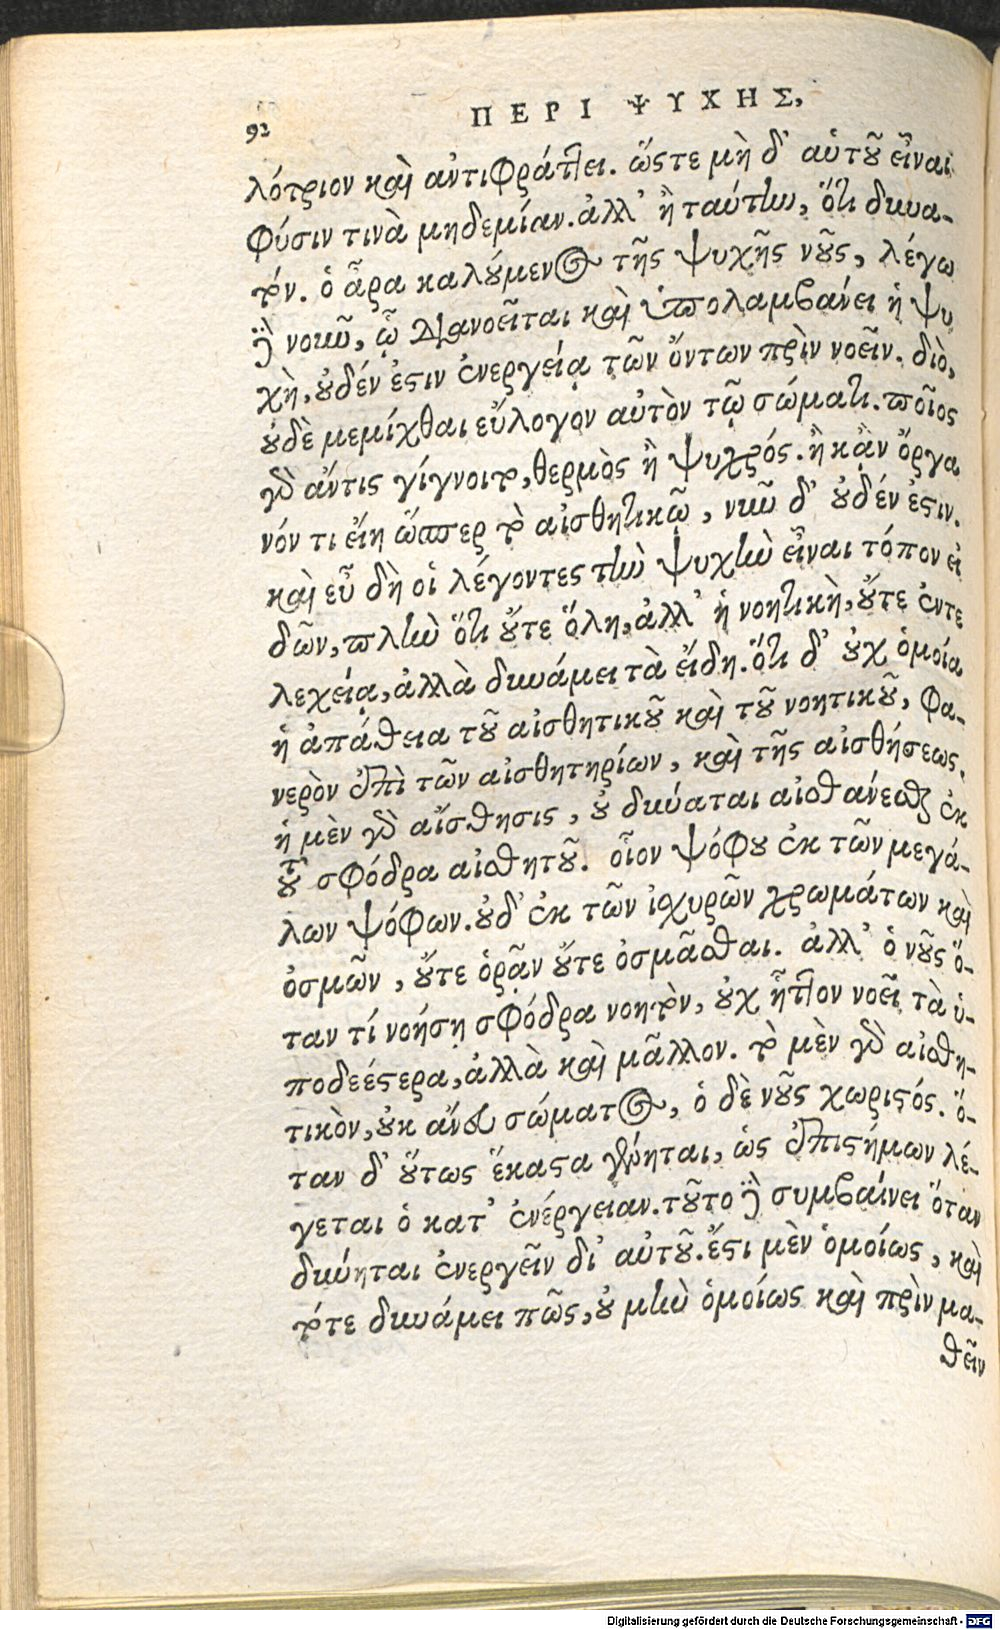 92
ΠΕΡΙ ΨΥΧΗΣ,
λότριον καὶ ἀντιφράττει. ὥστε μὴ δ' αὐτοῦ εἶναι
φύσιν τινὰ μηδεμίαν. ἀλλ' ἢ ταύτην, ὅτι δυνα-
τόν. ὁ ἄρα καλούμενος τῆς ψυχῆς νοῦς, λέγω
δὲ νοῦν, ᾧ διανοεῖται καὶ ὑπολαμβάνει ἡ ψυ
χὴ, οὐδέν ἐστιν ἐνεργείᾳ τῶν ὄντων πρὶν νοεῖν. διὸ,
οὐδὲ μεμίχθαι εὔλογον αὐτὸν τῷ σώματι. ποῖος
γὰρ ἄντις γίγνοιτο, θερμὸς ἢ ψυχρός. ἢ κᾂν ὄργα
νόν τι εἴη ὥσπερ τὸ αἰσθητικῷ, νῦν δ' οὐδέν ἐστιν.
καὶ εὖ δὴ οἱ λέγοντες τὴν ψυχὴν εἶναι τόπον εἰ
δῶν, πλὴν ὅτι οὔτε ὅλη, ἀλλ' ἡ νοητικὴ, οὔτε ἐντε
λεχείᾳ, ἀλλὰ δυνάμει τὰ εἴδη. ὅτι δ' οὐχ ὁμοία
ἡ ἀπάθεια τοῦ αἰσθητικοῦ καὶ τοῦ νοητικοῦ, φα-
νερὸν ἐπὶ τῶν αἰσθητηρίων, καὶ τῆς αἰσθήσεως.
ἡ μὲν γὰρ αἴσθησις, οὐ δύναται αἰσθάνεσθαι ἐκ
τοῦ σφόδρα αἰσθητοῦ. οἷον ψόφου ἐκ τῶν μεγά-
λων ψόφων. οὐδ' ἐκ τῶν ἰσχυρῶν χρωμάτων καὶ
ὀσμῶν, οὔτε ὁρᾷν οὔτε ὀσμᾶσθαι. ἀλλ' ὁ νοῦς ὅ-
ταν τί νοήσῃ σφόδρα νοητὸν, οὐχ ἧττον νοεῖ τὰ ὑ-
ποδεέστερα, ἀλλὰ καὶ μᾶλλον. τὸ μὲν γὰρ αἰσθη-
τικὸν, οὐκ ἄνευ σώματος, ὁ δὲ νοῦς χωριστός. ὅ-
ταν δ' οὕτως ἕκαστα γένηται, ὡς ἐπιστήμων λέ-
γεται ὁ κατ' ἐνέργειαν. τοῦτο δὲ συμβαίνει ὅταν
δύνηται ἐνεργεῖν δι' αὑτοῦ. ἔστι μὲν ὁμοίως, καὶ
τότε δυνάμει πῶς, οὐ μὴν ὁμοίως καὶ πρὶν μα-
θεῖν
Digitalisierung gefördert durch die Deutsche Forschungsgemeinschaft - DFG